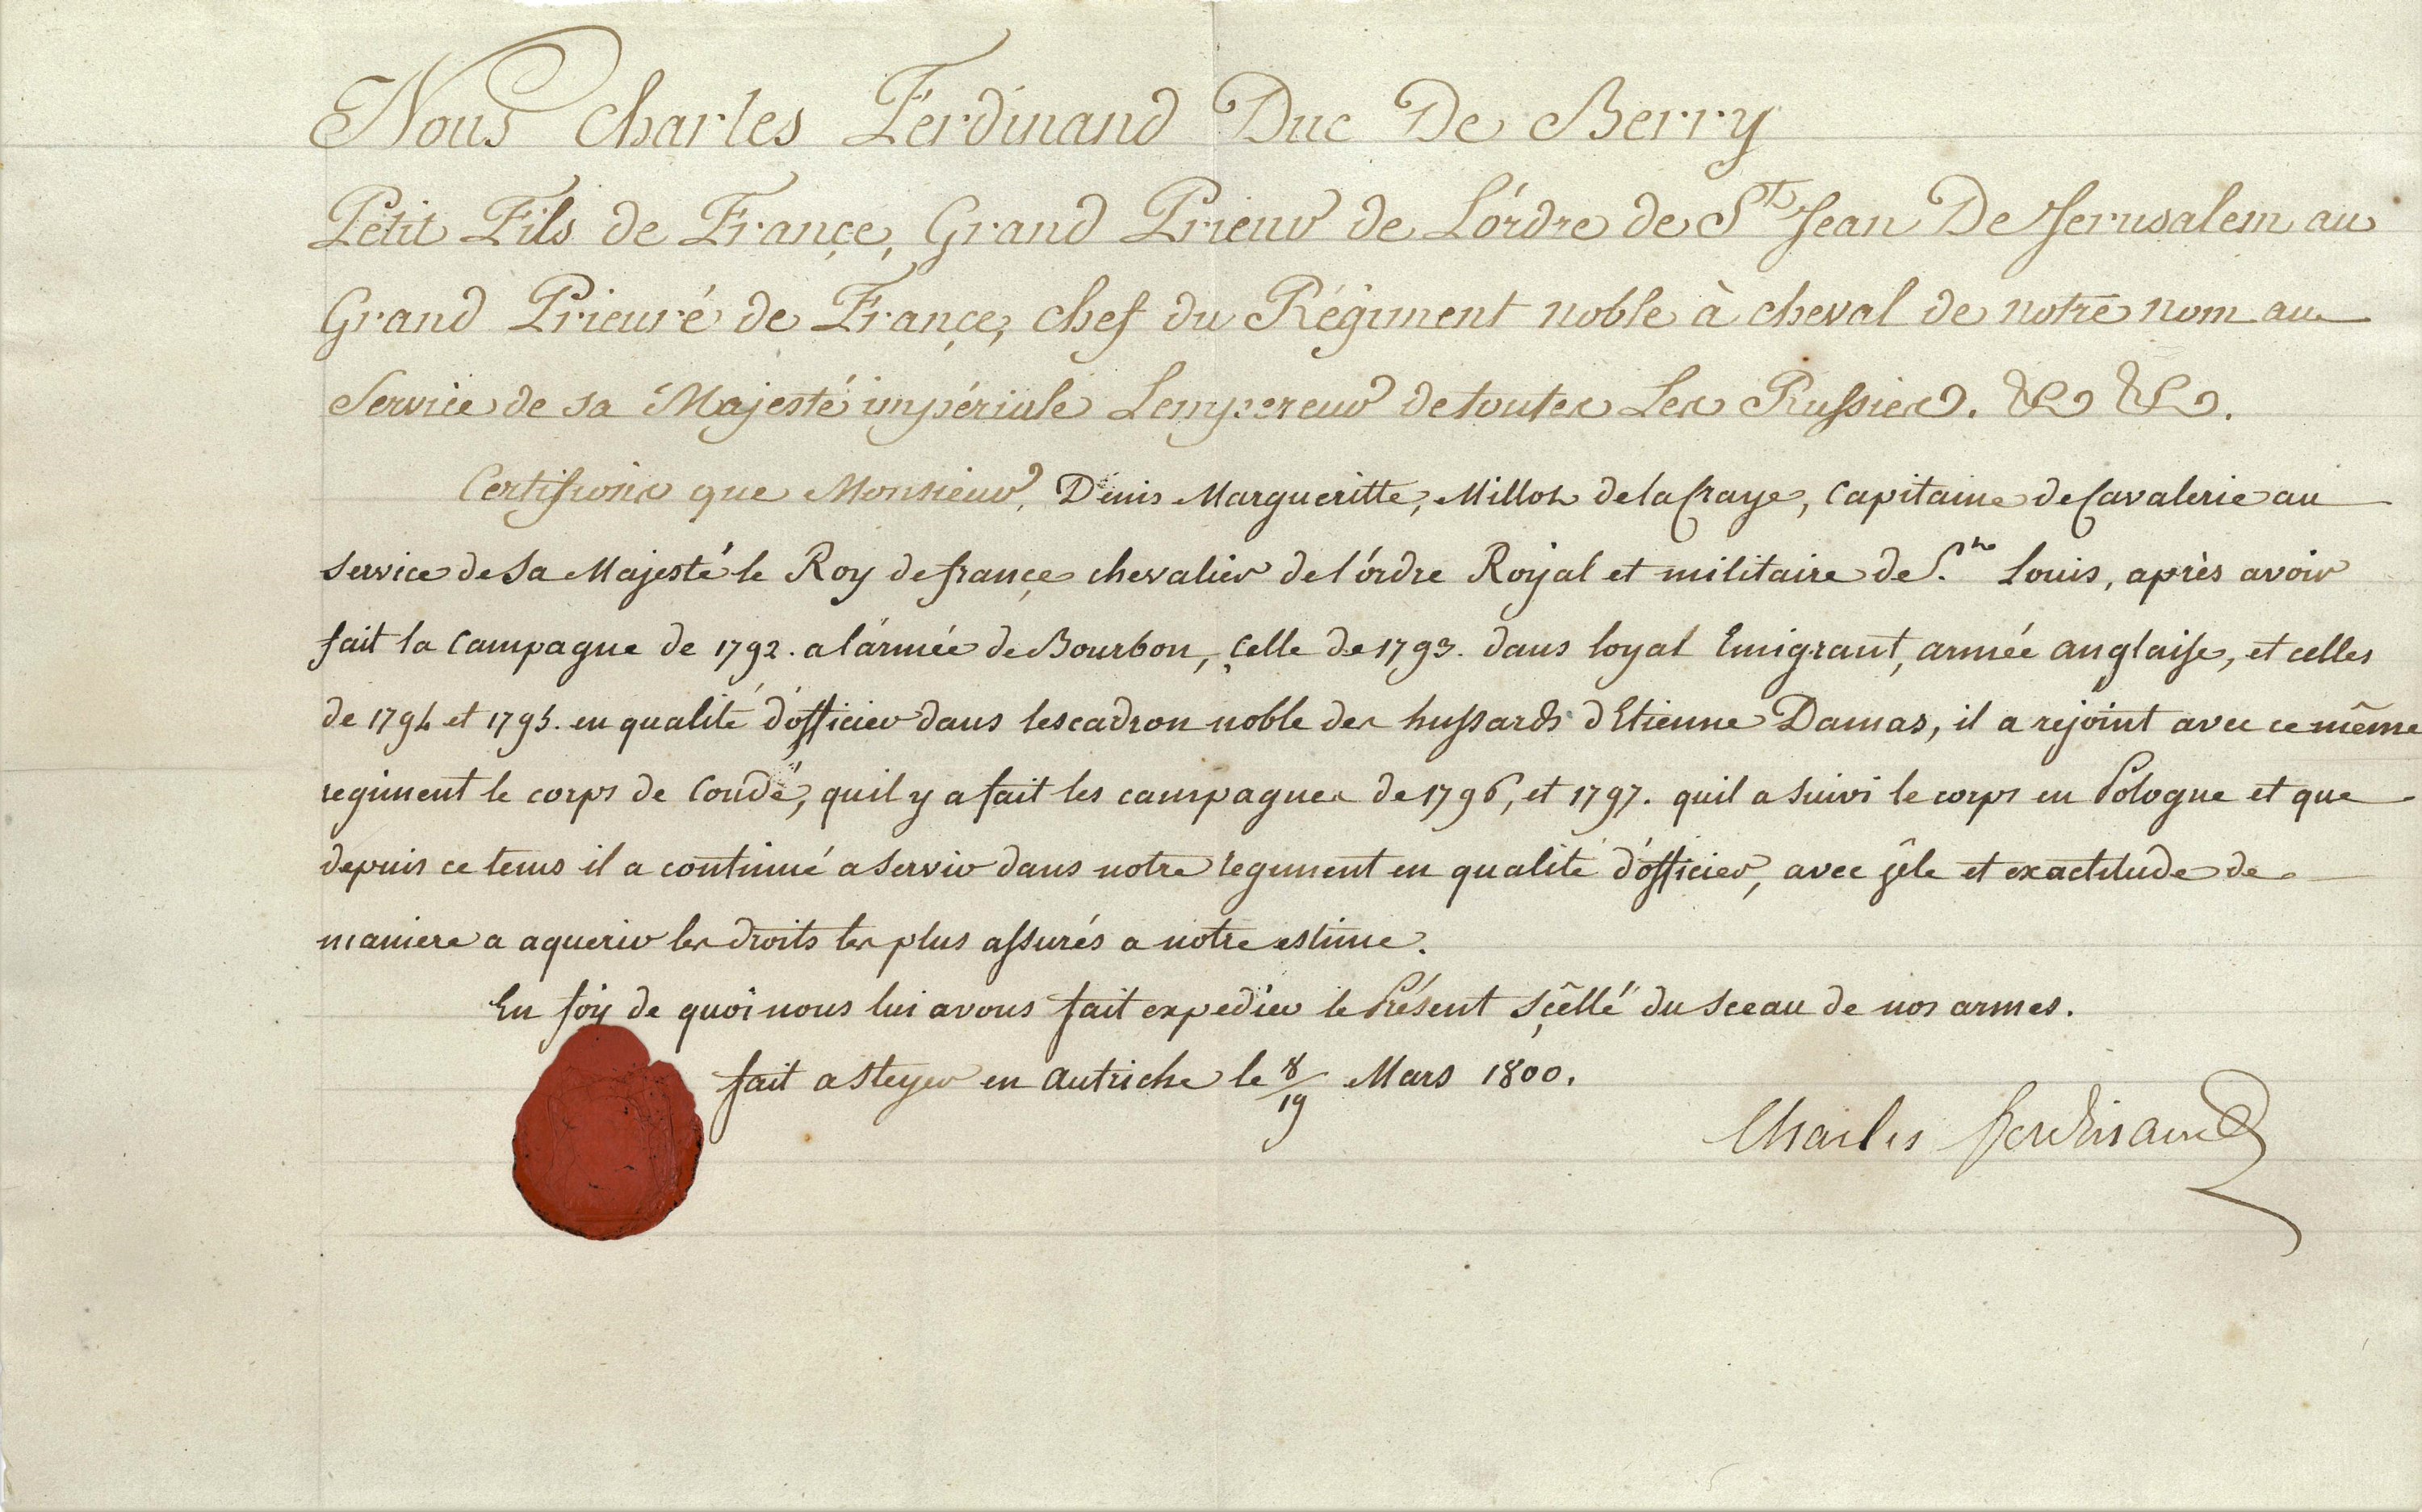 Nous Charles Ferdinand Duc De Berry
Petit Fils de Françe, Grand Prieur de L'ordre de St Jean De Jerusalem au
Grand Prieuré de Françe, chef du Régiment noble à cheval de notre nom au
Service de sa Majesté impériale Lempereur de toutes Les Russies. & &.
Certifions que Monsieur, Denis Margueritte, Millot de la Craye, Capitaine de Cavalerie au
service de Sa Majesté le Roy de françe chevalier de l'ordre Royal et militaire de St Louis, après avoir
fait la Campagne de 1792. a l'armée de Bourbon, çelle de 1793. dans loyal Emigrant, armée anglaise, et celles
de 1794 et 1795. en qualité d'officier dans lescadron noble des hussards d'Etienne Damas, il a rejoint avec ce même
regiment le corps de Condé, quil y a fait les campagnes de 1796, et 1797. quil a suivi le corps en Pologne et que
depuis ce tems il a continué a servir dans notre regiment en qualité d'officier, avec zêle et exactitude de
maniere a aquerir les droits les plus assurés a notre estime.
En foy de quoi nous lui avons fait expedier le Présent sçêllé du sceau de nos armes.
fait a Steyer en Autriche le 8/19 Mars 1800.
Charles ferdinand